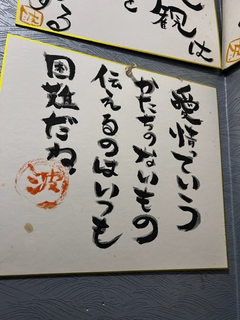 愛情っていう
かたちのないもの
伝えるのはいつも
困難だね
波
観は
と
する